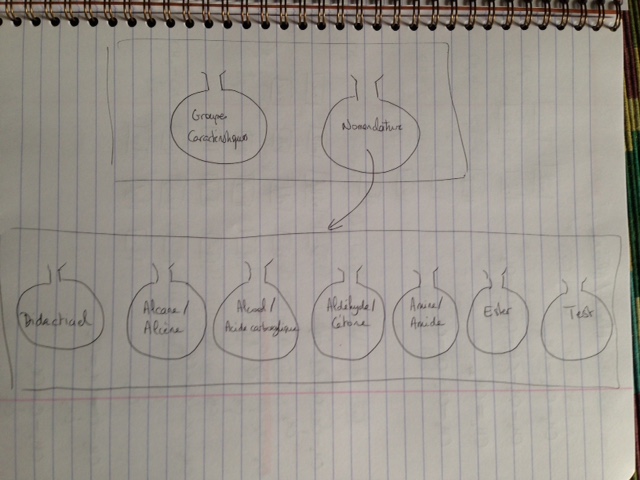 Groupe
Caractéristique
Nomenclature
Didacticiel
Alcane /
Alcène
Alcool /
Acide carboxylique
Aldéhyde /
Cétone
Amine /
Amide
Ester
Test